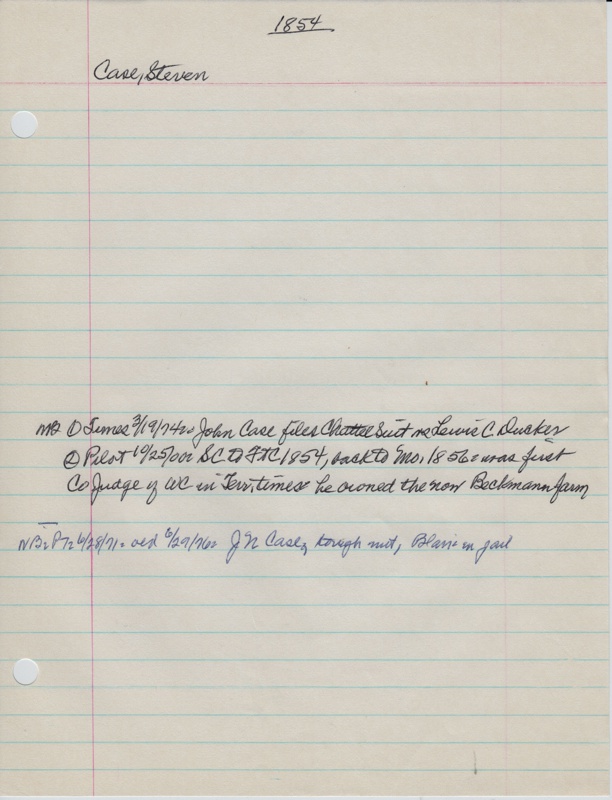 1854
Case, Steven
① Times 3/19/74 = John Case files Chattel Suit vs Lewis C. Ducker
② Pilot 10/25/00: SC to FTC 1854, back to Mo, 1856 = was first
Co Judge of WC in Terr. times = he owned the now Beckmann farm
NB: 6/28/71 = 6/29/76 = J N Case, tough nut, Blair in jail